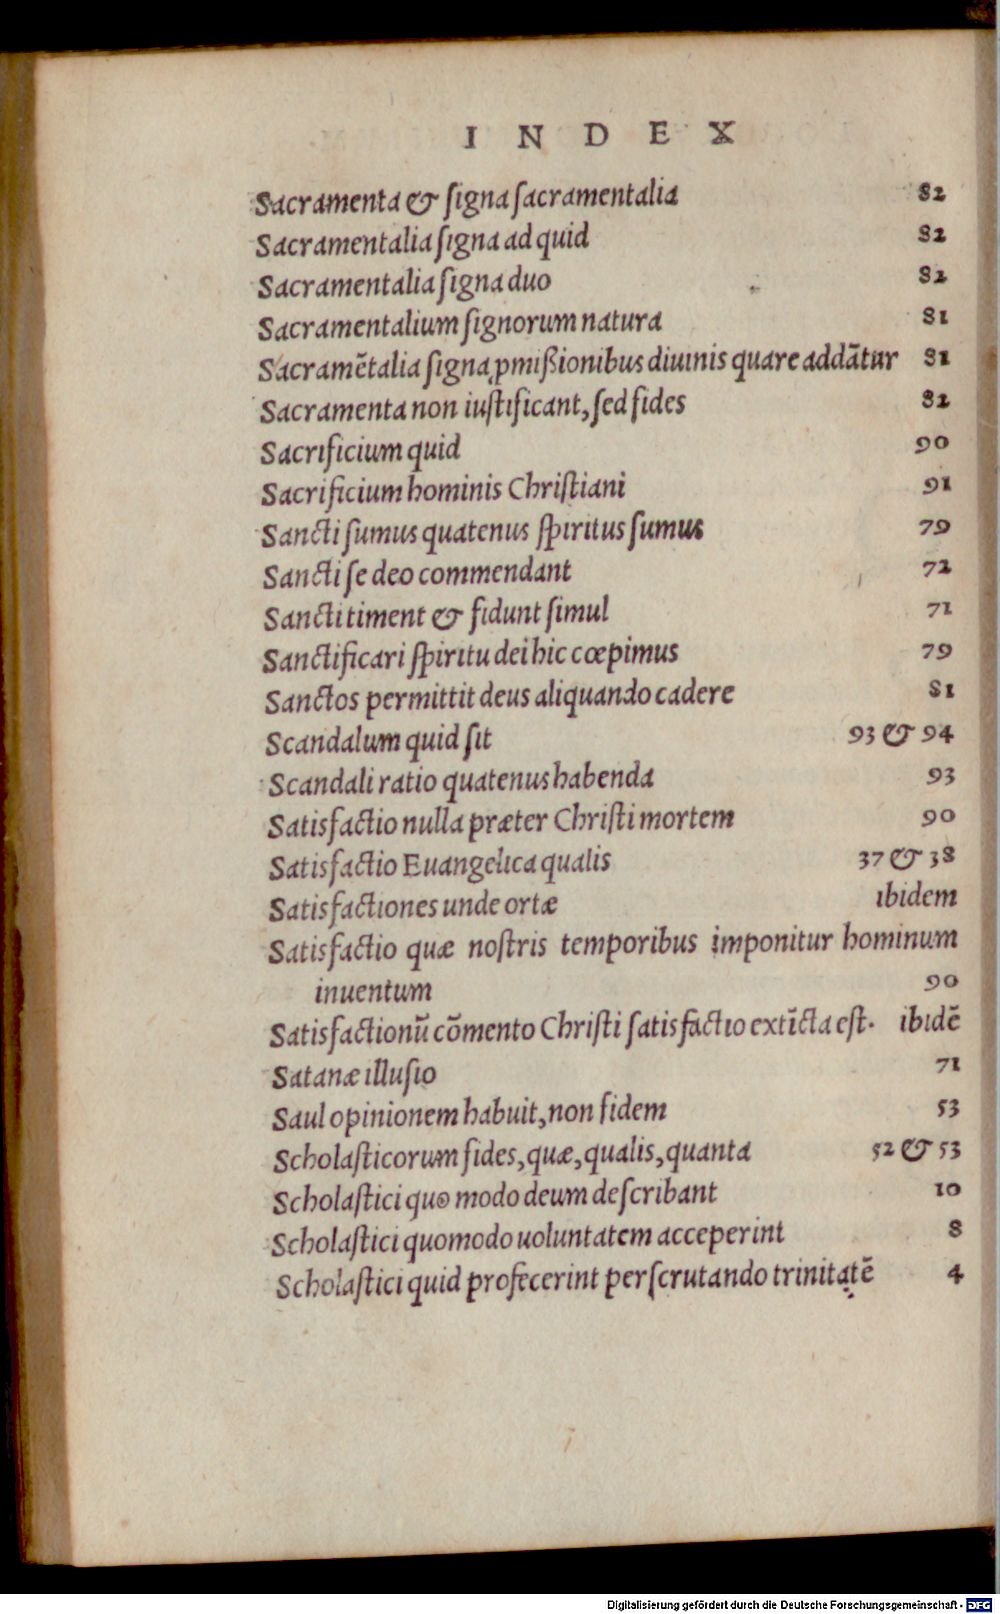 INDEX
Sacramenta & ſigna ſacramentalia 82
Sacramentalia ſigna ad quid 82
Sacramentalia ſigna duo 82
Sacramentalium ſignorum natura 81
Sacramētalia ſigna ꝓmißionibus diuinis quare addātur 81
Sacramenta non iuſtificant, ſed fides 82
Sacrificium quid 90
Sacrificium hominis Chriſtiani 91
Sancti ſumus quatenus ſpiritus ſumus 79
Sancti ſe deo commendant 72
Sancti timent & fidunt ſimul 71
Sanctificari ſpiritu dei hic cœpimus 79
Sanctos permittit deus aliquando cadere 81
Scandalum quid ſit 93 & 94
Scandali ratio quatenus habenda 93
Satisfactio nulla præter Chriſti mortem 90
Satisfactio Euangelica qualis 37 & 38
Satisfactiones unde ortæ ibidem
Satisfactio quæ noſtris temporibus imponitur hominum
inuentum 90
Satisfactionū cōmento Chriſti ſatisfactio extīcta eſt. ibidē
Satanæ illuſio 71
Saul opinionem habuit, non fidem 53
Scholaſticorum fides, quæ, qualis, quanta 52 & 53
Scholaſtici quo modo deum deſcribant 10
Scholaſtici quomodo uoluntatem acceperint 8
Scholaſtici quid profecerint perſcrutando trinitatē 4
Digitalisierung gefördert durch die Deutsche Forschungsgemeinschaft - DFG